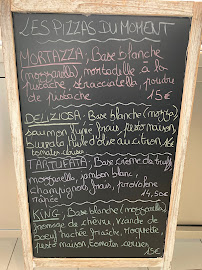 LES PIZZAS DU MOMENT
MORTAZZA: Base blanche
(mozzarella) mortadelle à la
pistache, straccatella, poudre
de pistache 15€
DELIZIOSA: Base blanche (mozza)
saumon fumé frais, pesto maison,
burrata, huile d'olive au citron 16€
tomates
TARTUFATA: Base crème de truffe,
mozzarella, jambon blanc,
champignons frais, provolone
14,50€
KING: Base blanche (mozzarella)
fromage de chèvre, viande de
boeuf hachée fraîche, roquette,
pesto maison, tomates cerises,
15€